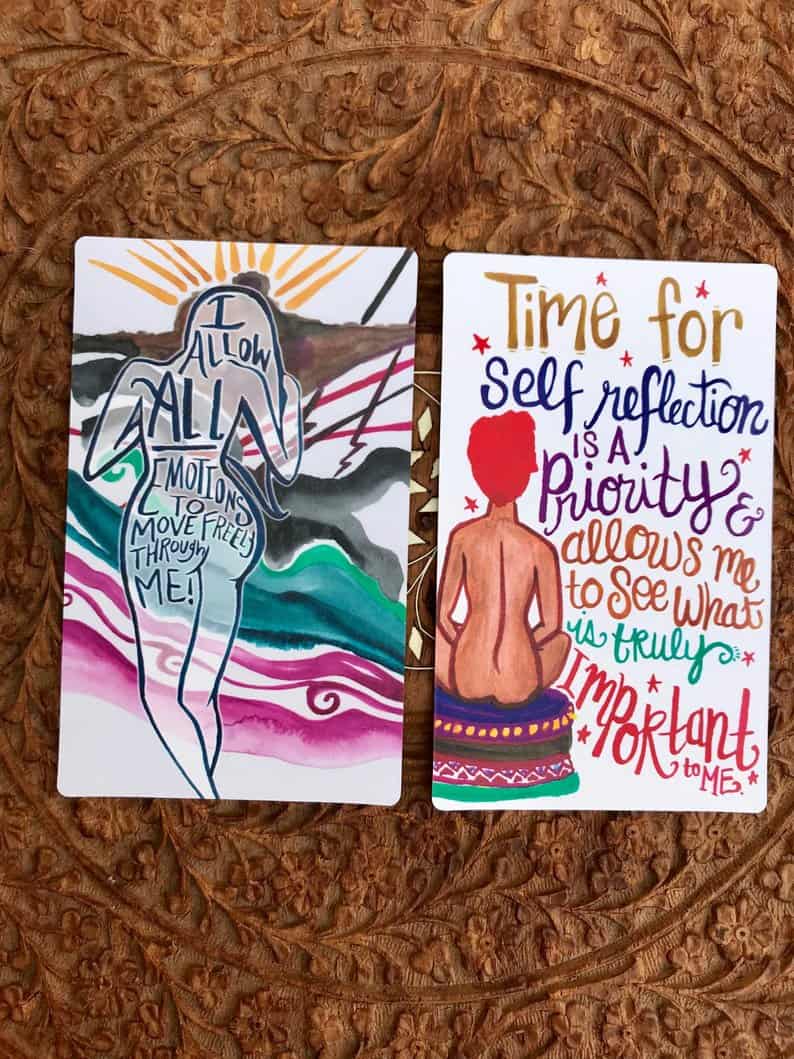 I
ALLOW
ALL
EMOTIONS
TO
MOVE FREELY
THROUGH
ME!
Time for
Self reflection
IS A
Priority &
allows me
to see what
is truly
Important
to ME.